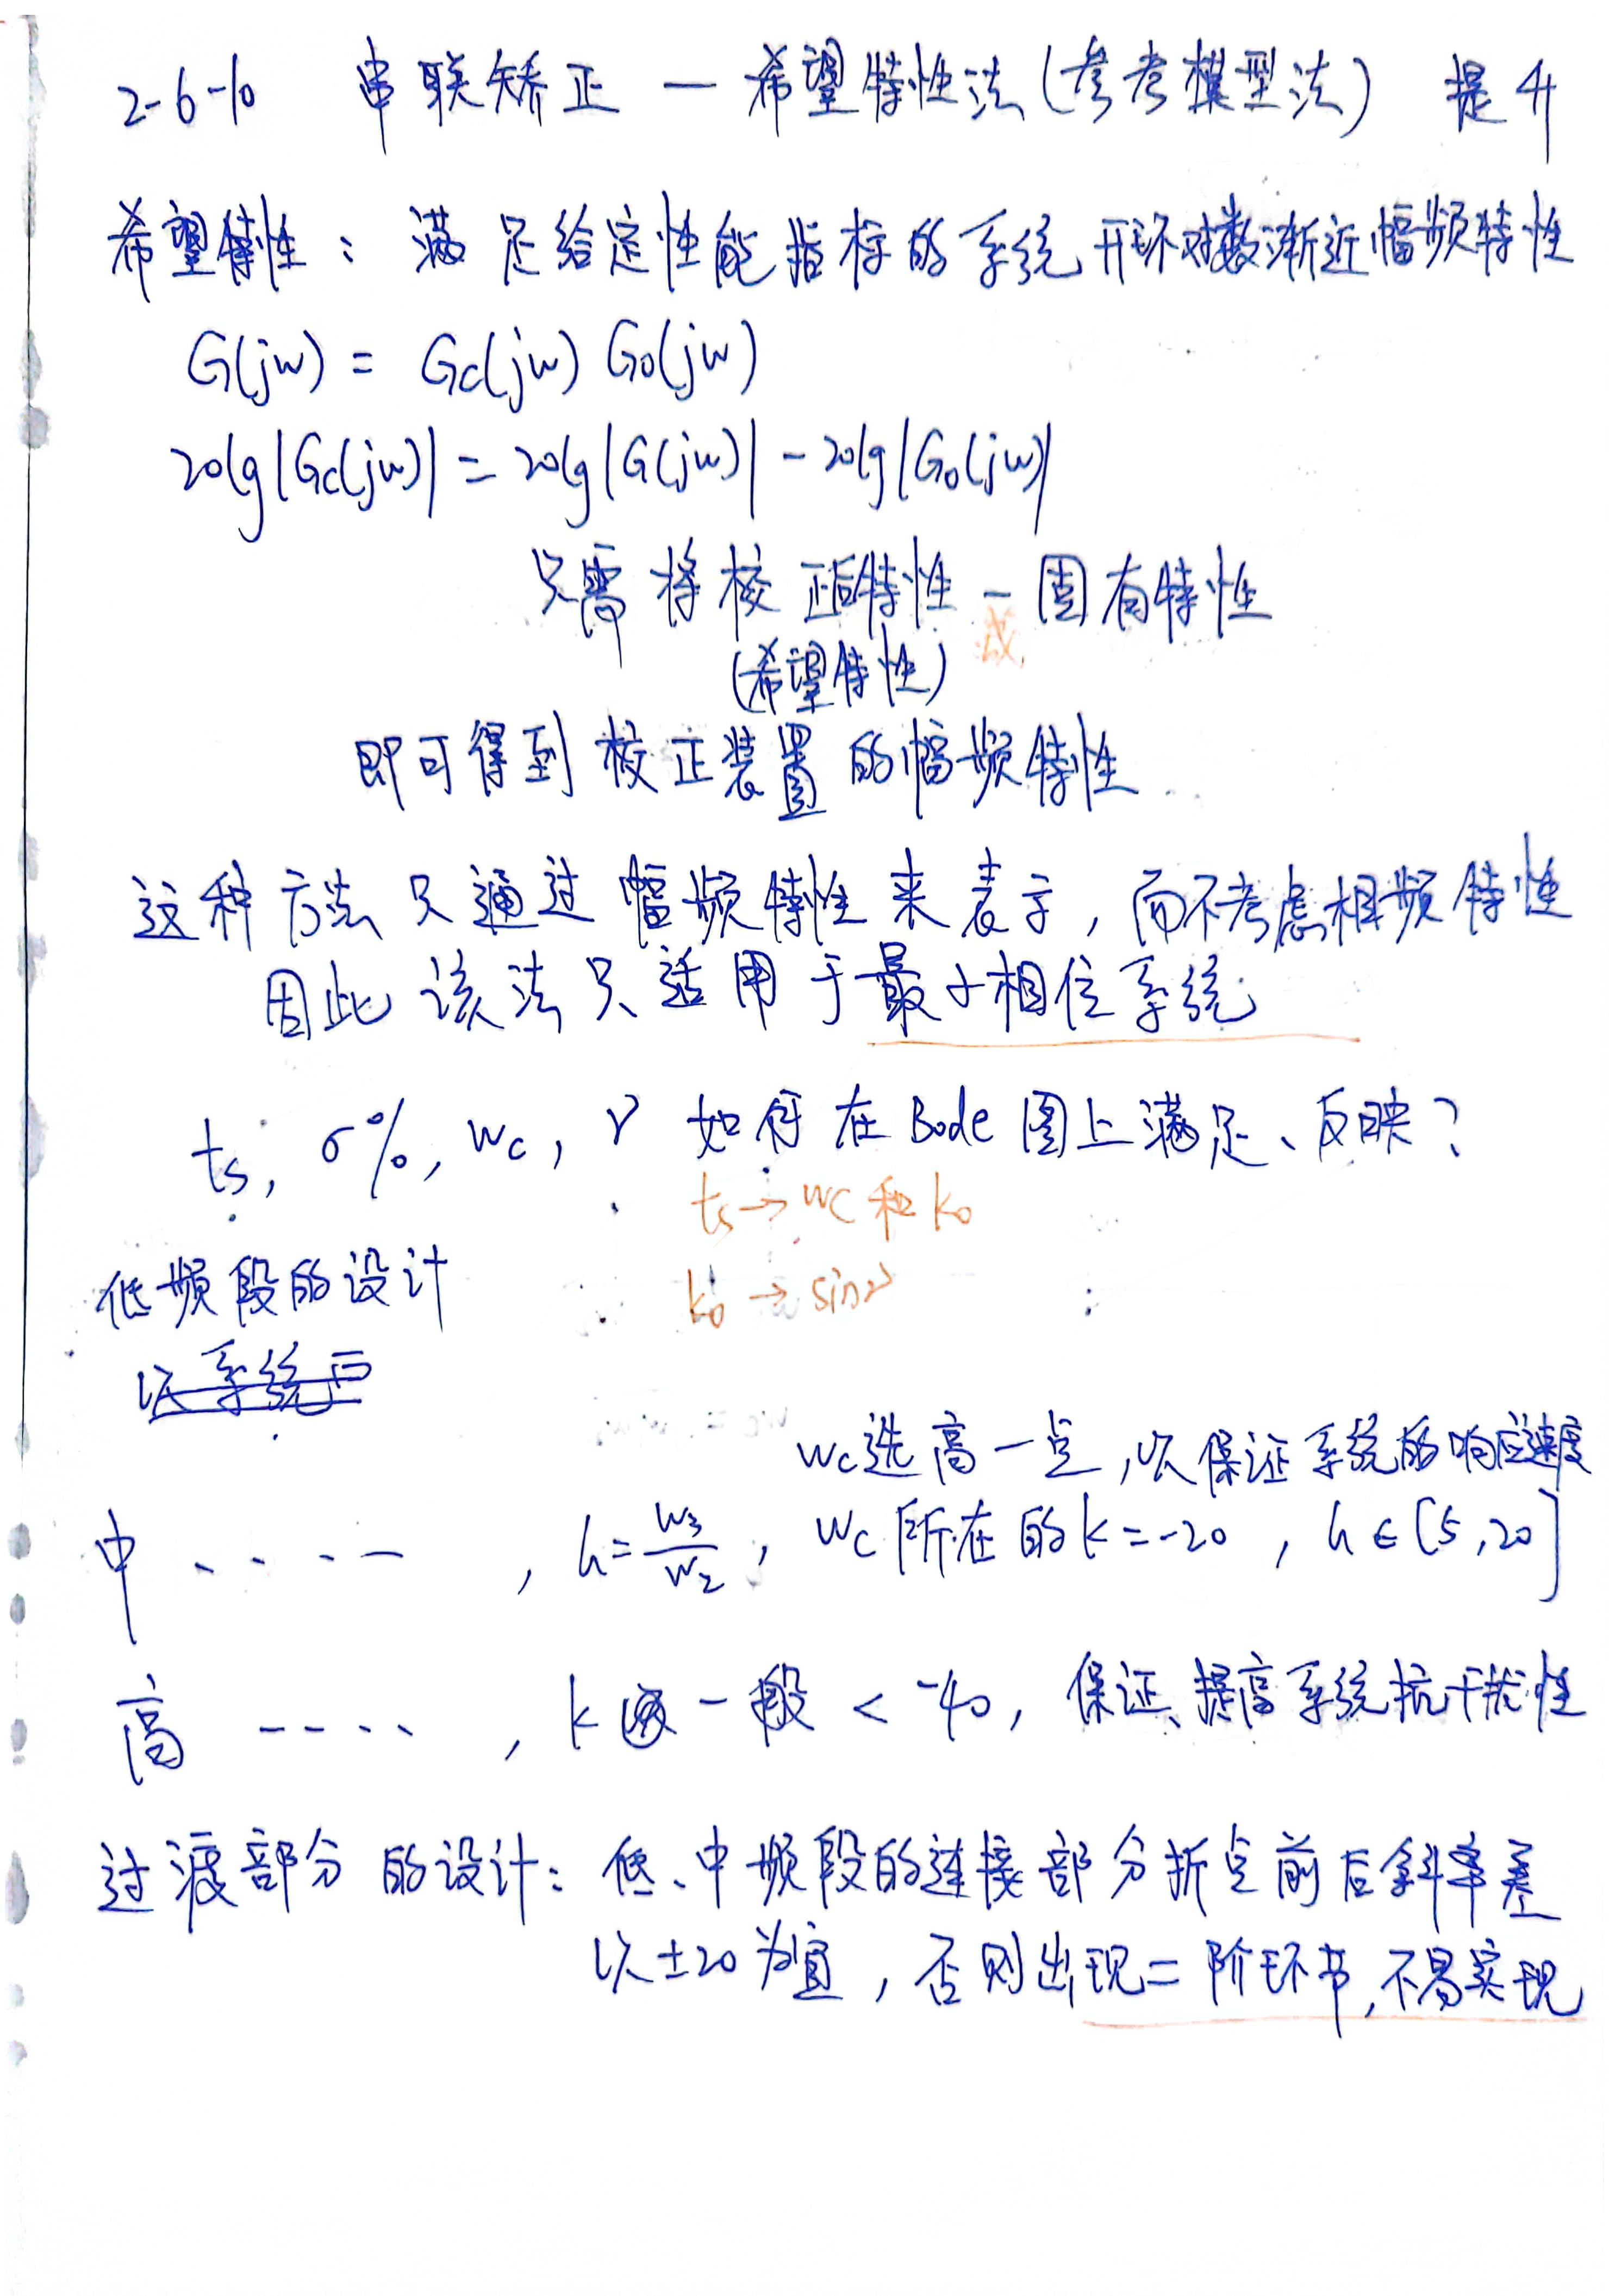 2-6-10 串联矫正 — 希望特性法(参考模型法) 提升
希望特性: 满足给定性能指标的系统开环对数渐近幅频特性
G(jw) = Gc(jw) Go(jw)
20lg|Gc(jw)| = 20lg|G(jw)| - 20lg|Go(jw)|
只需将校正后特性 - 固有特性
减
(希望特性)
即可得到校正装置的幅频特性
这种方法只通过幅频特性来表示,而不考虑相频特性
因此该法只适用于最小相位系统
ts, σ%, wc, γ 如何在Bode图上满足、反映?
ts → wc 和 ko
ko → sinγ
低频段的设计
wc选高一点,以保证系统的响应速度
中 ---- , h = w3/w2, wc所在的k=-20, h∈[5,20]
高 ---- , k 一般 < -40, 保证、提高系统抗干扰性
过渡部分的设计: 低、中频段的连接部分折点前后斜率差
以±20为宜, 否则出现二阶环节,不易实现